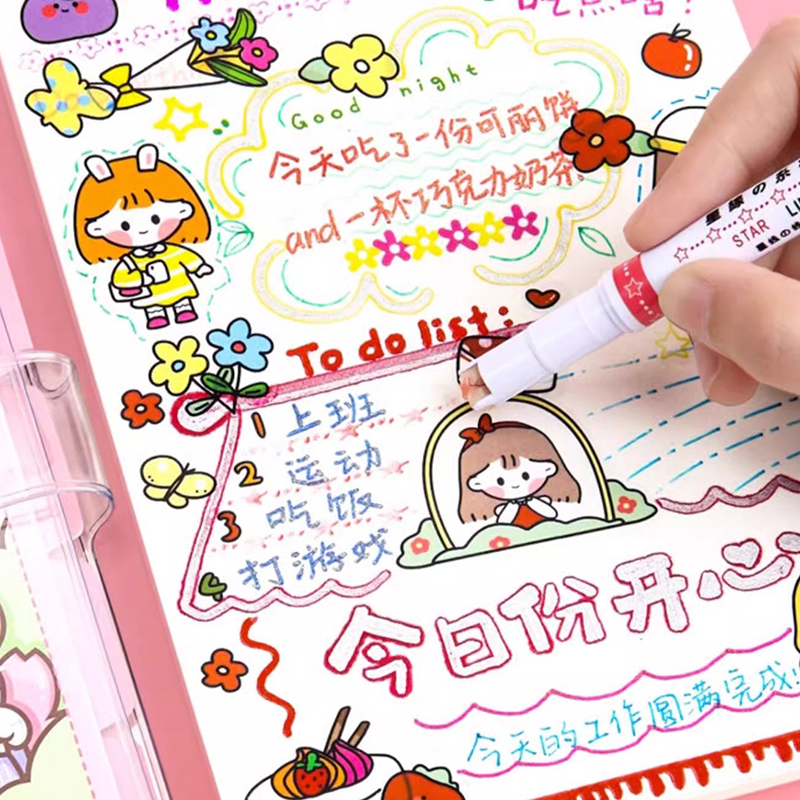 吃点啥?
Good night
今天吃了一份可丽饼
and一杯巧克力奶茶.
To do list:
1 上班
2 运动
3 吃饭
4 打游戏
STAR
今日份开心
今天的工作圆满完成!